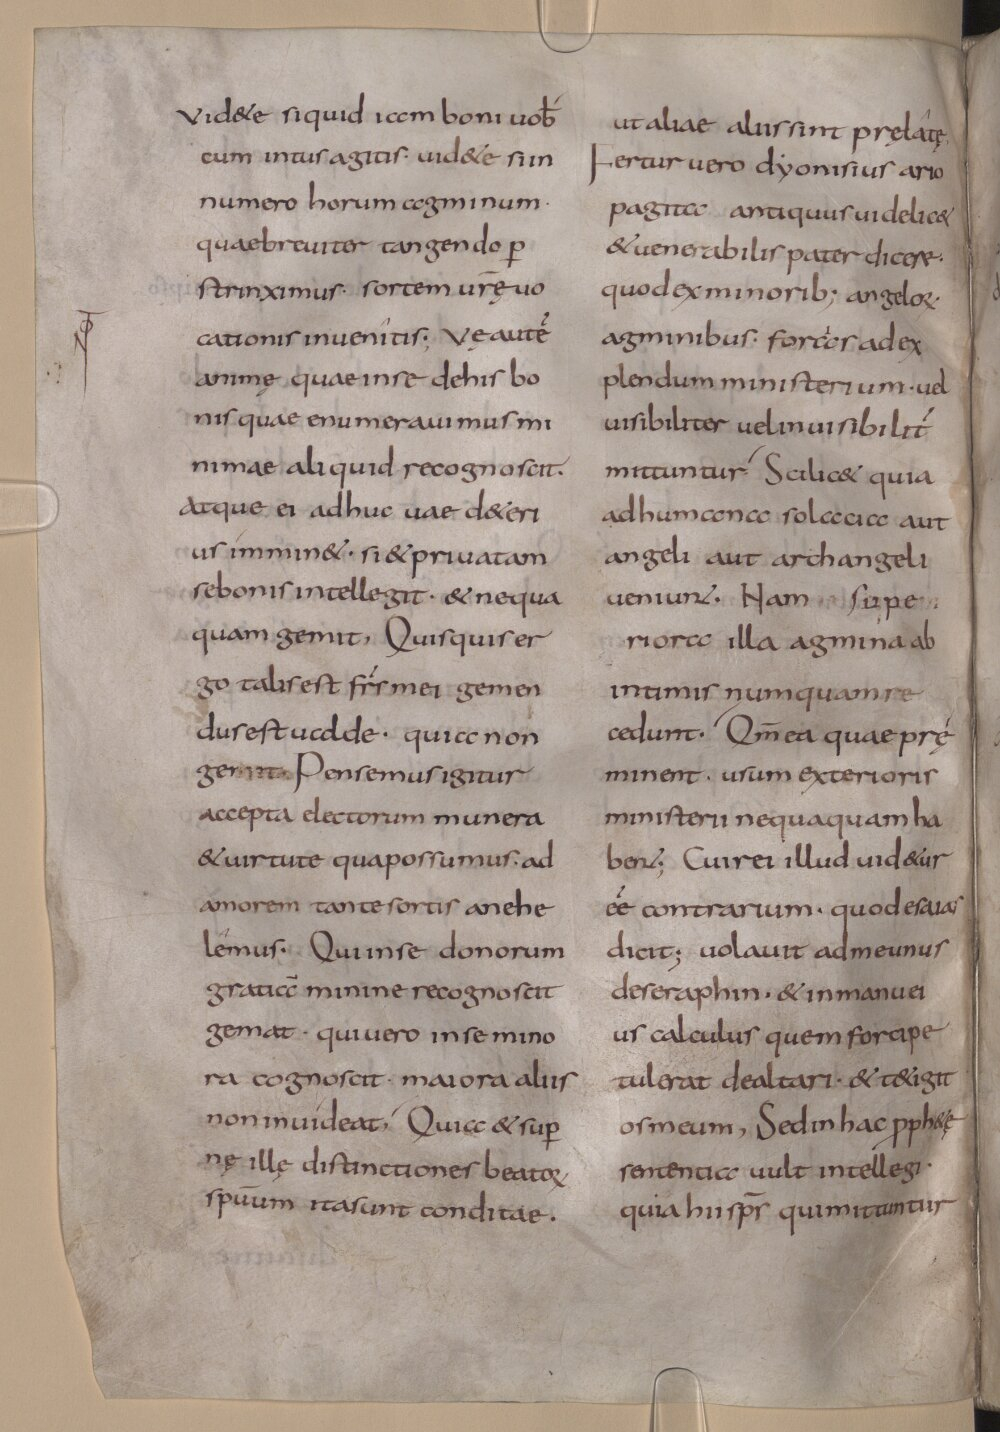 vid&e siquid iam boni uob̄
cum intus agitis· uid&e si in
numero horum agminum·
quae breuiter tangendo ꝑ
strinximus· sortem ur̄ę uo
cationis inuenitis; Vę autē
animę quae in se de his bo
nis quae enumerauimus mi
nimae aliquid recognoscit.
Atque ei adhuc uae d&eri
us immin&· si & priuatam
se bonis intellegit· & nequa
quam gemit, Quisquis er
go talis est fr̄s mei gemen
dus est ualde· quia non
gemit. Pensemus igitur
accepta electorum munera
& uirtute qua possumus· ad
amorem tante sortis anehe
lemus· Qui in se donorum
gratiā minine recognoscit
gemat· qui uero in se mino
ra cognoscit· maiora aliis
non inuideat, Quia & suꝑ
nę illę distinctiones beatoꝝ
spūum ita sunt conditae.
ut aliae aliis sint pręlatę,
Fertur vero dyonisius ario
pagita antiquus uidelic&
& uenerabilis pater dicere·
quod ex minorib; angeloꝝ
agminibus· foras ad ex
plendum ministerium· uel
uisibiliter uel inuisibilit̄
mittuntur Scilic& quia
ad humana solacia aut
angeli aut archangeli
ueniunt· Nam supe
riora illa agmina ab
intimis numquam re
cedunt· Qm̄ ea quae prę
minent· usum exterioris
ministerii nequaquam ha
bent; Cui rei illud uid&ur
eē contrarium· quod esaias
dicit; uolauit ad me unus
de seraphin· & in manu ei
us calculus quem forcipe
tulerat de altari· & t&igit
os meum, Sed in hac ꝓph&ę
sententia uult intellegi·
quia hii sp̄s qui mittuntur